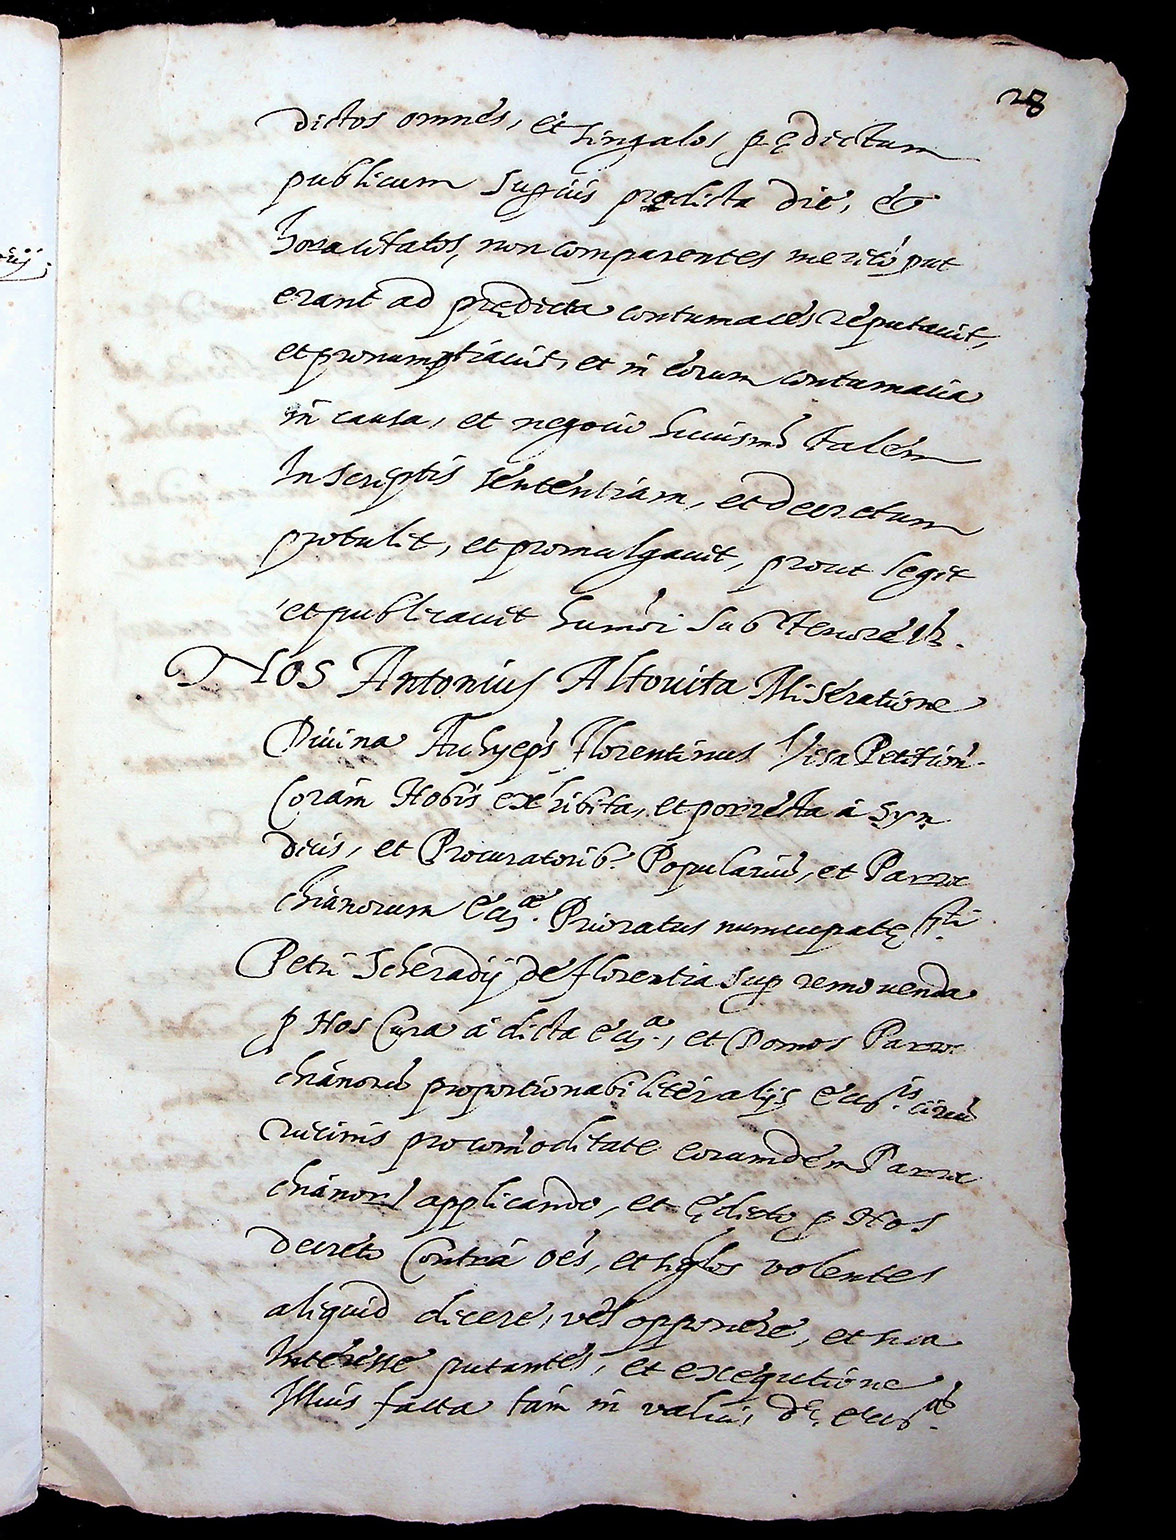 28
dictos omnes, et singulos p ędictum
publicum superius predicta die, et
hora citatos, non comparentes merito put
erant ad prędicta contumaces reputavit,
et pronumptiavit, et in eorum contumacia
in causa, et negocio huiusmoi talem
In scriptis sententiam, et decretum
protulit, et promulgavit, prout legit
et publicavit humoi sub tenore
NOS Antonius Altovita Miseratione
Divina Archyepus Florentinus Visa Petition
Coram Nobis exhibita, et porrecta a Syn
dicis, et Procuratorib. Popularium, et Parro
chianorum Eccæ. Prioratus nuncupatę Sti
Petri Scheradij de florentia sup removenda
p Nos Cura a dicta Ecca., et Domos Parro
chianorū proportionabiliter alijs Eccliis. circū
vicinis pro comoditate eorumdem Parro
chianor applicando, et Ędicto p Nos
decreto Contra oes, et siglos volentes
aliquid dicere, vel opponere, et sua
Interesse putantes, et exequtione
Illius facta tam in valvis dę Eccl